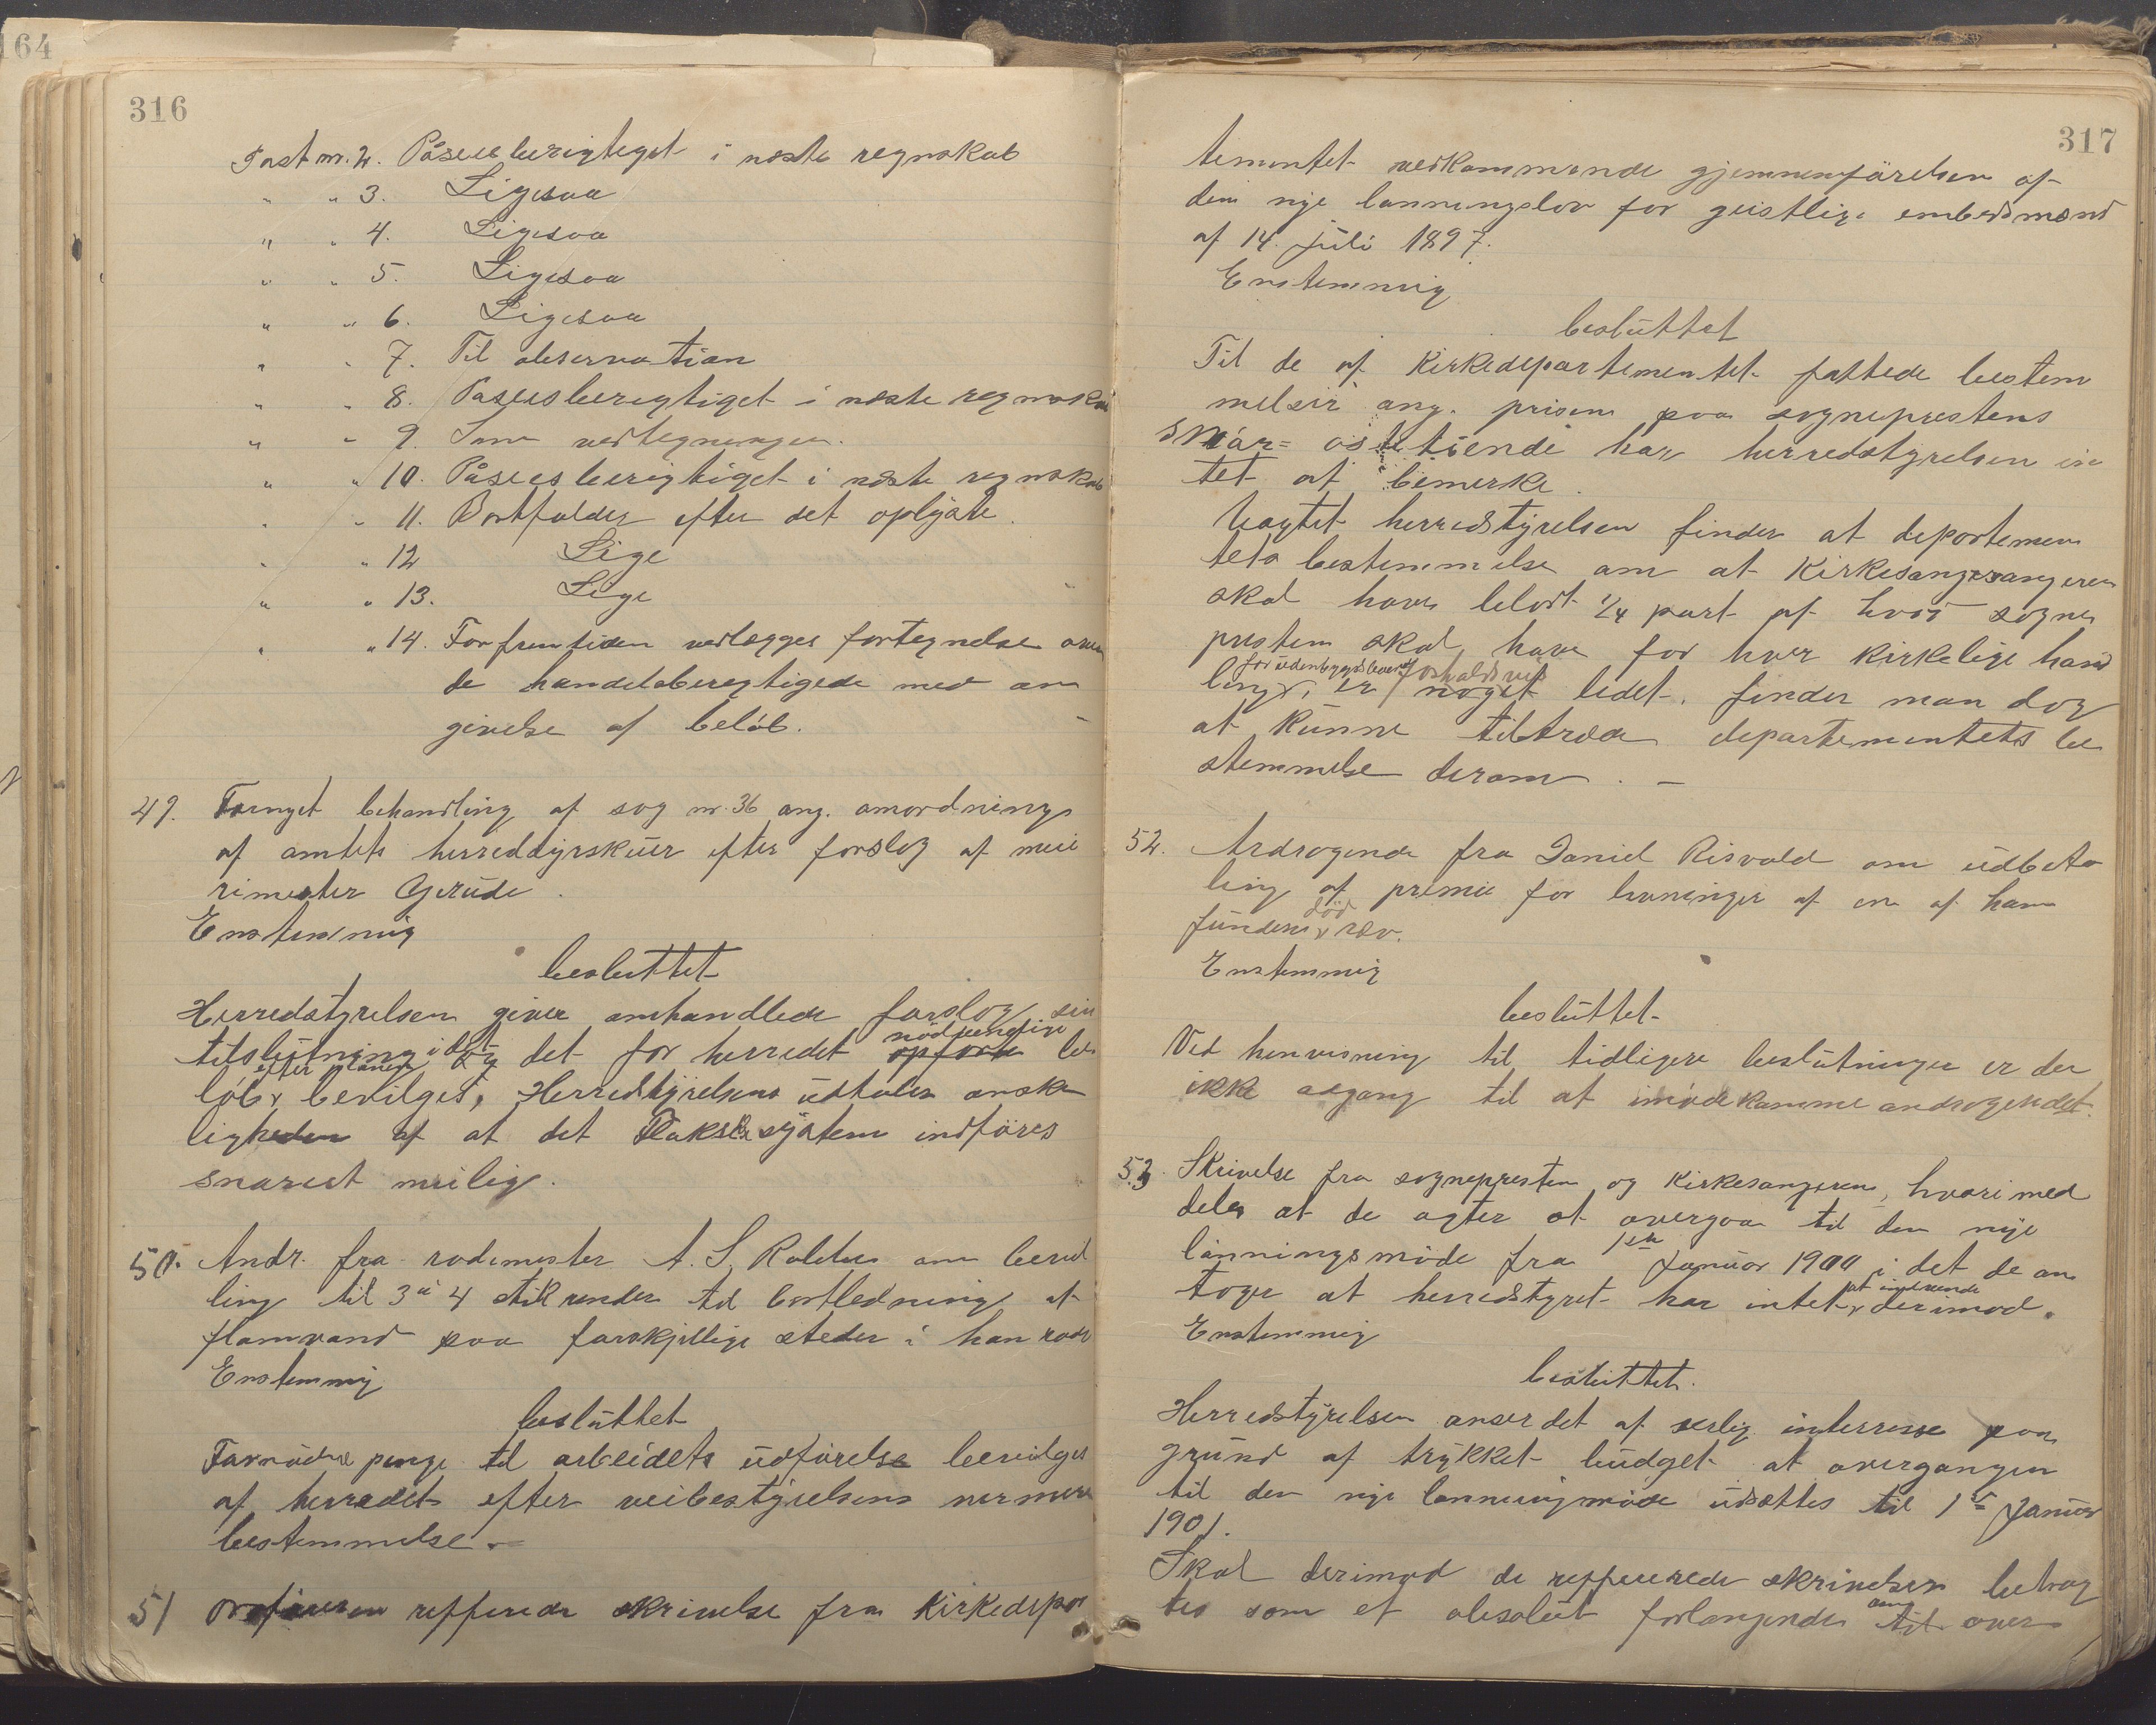 164
316
Post nr. 2. Påsees berigtiget i næste regnskab
" " 3. Ligesaa
" " 4. Ligesaa
" " 5. Ligesaa
" " 6. Ligesaa
" " 7. Til observation
" " 8. Påsees berigtiget i næste regnskab
" " 9. Som vedtegningen.
" " 10. Påsees berigtiget i næste regnskab
" " 11. Bortfalder efter det oplyste.
" " 12 Lige
" " 13. Lige
" " 14. For fremtiden vedlægges fortegnelse over
de handelsberegtigede med an
givelse af beløb.
49. Fornyet behandling af sag nr. 36 ang. anordning
af amtets herreddyrskuer efter forslag af meie
rimester Gerude.
Enstemmig
besluttet
Herredstyrelsen giver omhandlede forslag sin
tilslutning idet det for herredet nödvendige be
löb efter planen bevilges, Herredstyrelsen udtaler ønske
ligheden af at det system indföres
snarest mulig.
50. Andr. fra rodemester A. S. om bevil
ling til 3 à 4 stikrender til bortledning af
flomvand paa forskjellige steder i han rode
Enstemmig
besluttet
Fornödne penge til arbeidets udförelse bevilges
af herredet efter veibestyrelsens nermere
bestemmelse.
51 Ordföreren refferede skrivelse fra Kirkedepar
317
tementet vedkommende gjennemförelsen af
den nye lønningslov for geistlige embedsmænd
af 14. juli 1897.
Enstemmig
besluttet
Til de af Kirkedepartementet fattede bestem
melser ang. prisen paa sogneprestens
smör= ostetiende har herredstyrelsen in
tet at bemerke.
Uagtet herredstyrelsen finder at departemen
tets bestemmelse om at Kirkesangeren
skal have belöst 1/4 part af hvad sogne
presten skal have for hver kirkelige hand
ling for udenbygdsboende, er forholdsvis noget ledet, finder man dog
at kunne tiltræde departementets be
stemmelse derom. —
52. Andragende fra Daniel Risvold om udbeta
ling af premie for levninger af en af ham
funden död ræv.
Enstemmig
besluttet
Ved henvisning til tidligere beslutninger er der
ikke adgang til at imödekomme andragendet.
53. Skrivelse fra sognepresten og Kirkesangeren, hvori med
deles at de agter at overgaa til den nye
lönningsmåde fra 1ste Januar 1900 i det de an
tager at herredstyret har intet at indvende derimod.
Enstemmig
besluttet.
Herredstyrelsen anser det af serlig interresse paa
grund af trykket budget at overgangen
til den nye lønningsmåde udsættes til 1ste Januar
1901.
Skal derimod de refferede skrivelser betrag
tes som et absolut forlangende om at over